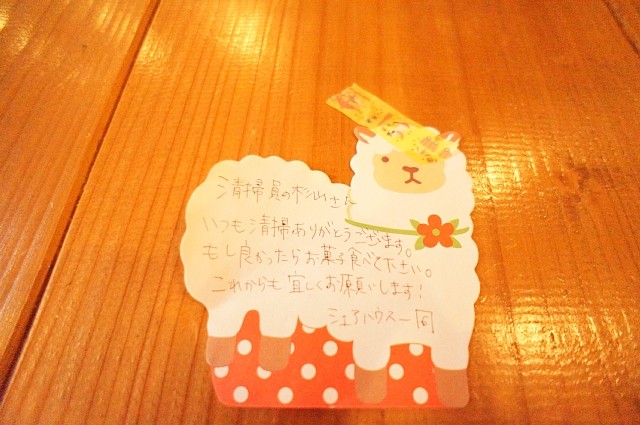 清掃員の杉山さん
いつも清掃ありがとうございます。
もし良かったらお菓子食べて下さい。
これからも宜しくお願いします!
シェアハウス一同